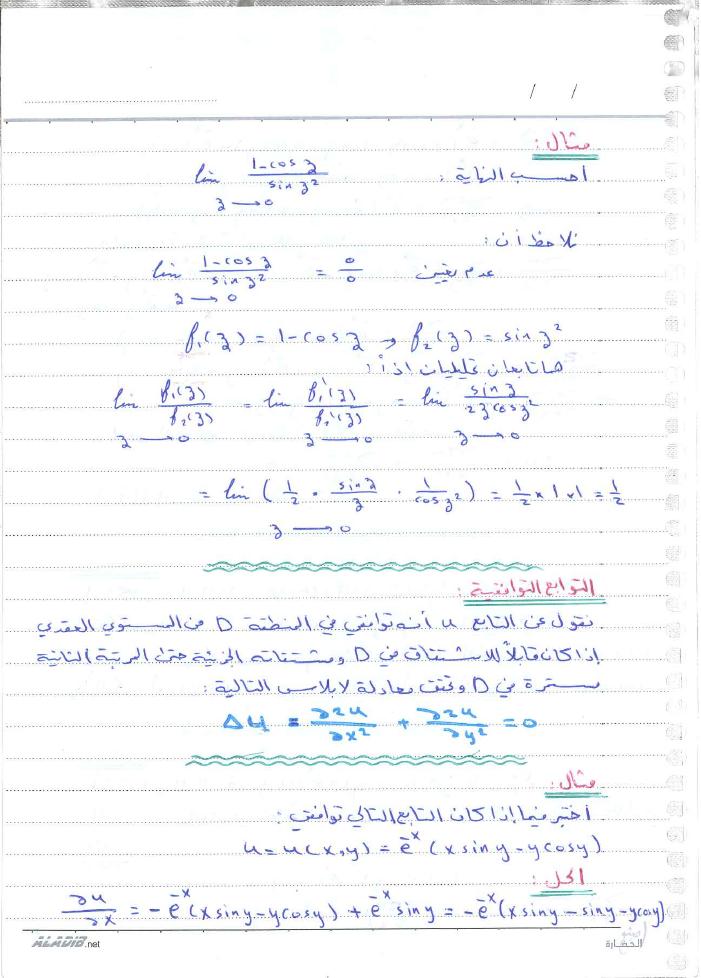 / /
مثال :
أحسب النهاية : lim (1-cos z)/(sin z²)
z → 0
نلاحظ أن :
lim (1-cos z)/(sin z²) = 0/0 عدم تعيين
z → 0
f₁(z) = 1-cos z , f₂(z) = sin z²
هما تابعان تحليليان إذاً :
lim f₁(z)/f₂(z) = lim f₁'(z)/f₂'(z) = lim (sin z)/(2z cos z²)
z → 0 z → 0 z → 0
= lim ( 1/2 · (sin z)/z · 1/(cos z²) ) = 1/2 × 1 × 1 = 1/2
z → 0
التوابع التوافقية :
نقول عن التابع u أنه توافقي في المنطقة D من المستوي العقدي
إذا كان قابلاً للاشتقاق في D ومشتقاته الجزئية حتى المرتبة الثانية
مستمرة في D وتحقق معادلة لابلاس التالية :
Δu = ∂2u/∂x² + ∂2u/∂y² = 0
مثال :
أختبر فيما إذا كان التابع التالي توافقي :
u = u(x,y) = e⁻ˣ (x sin y - y cos y)
الحل :
∂u/∂x = -e⁻ˣ (x sin y - y cos y) + e⁻ˣ sin y = -e⁻ˣ (x sin y - sin y - y cos y)
ALADIB.net
الحضارة